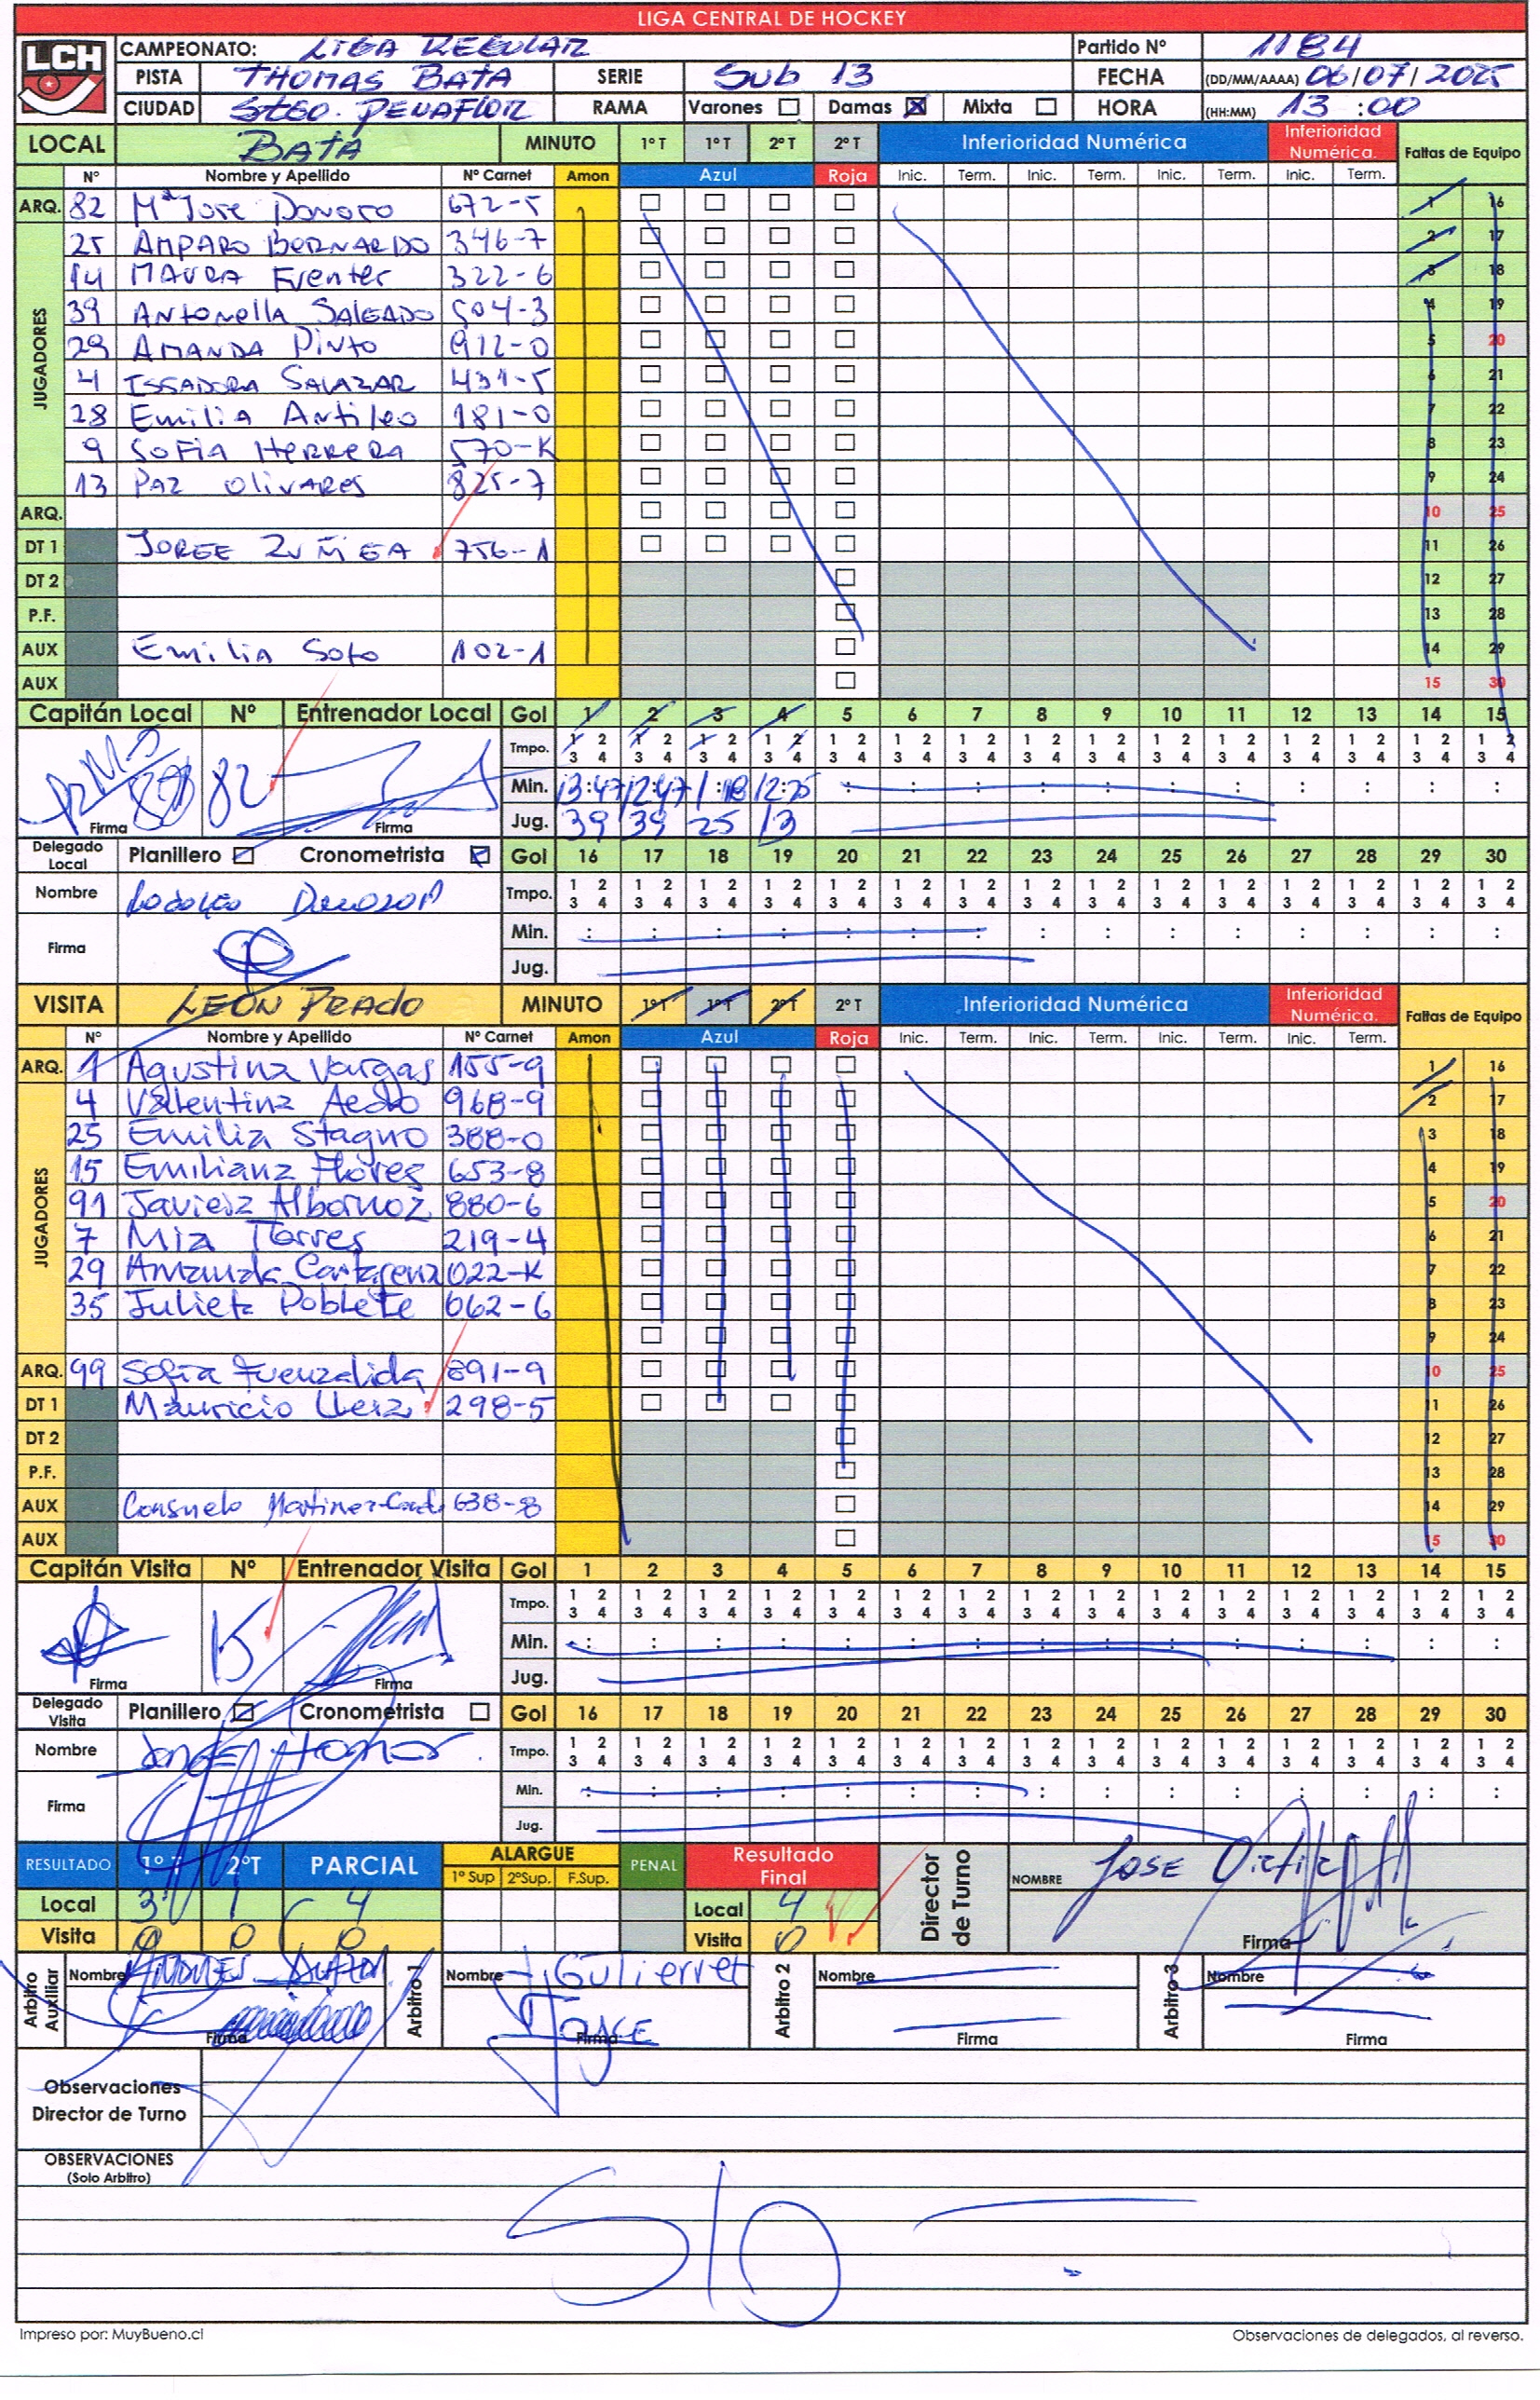 LIGA CENTRAL DE HOCKEY
LCH CAMPEONATO: LIGA REGULAR Partido Nº 1184
PISTA THOMAS BATA SERIE Sub 13 FECHA (DD/MM/AAAA) 06/07/2025
CIUDAD STGO. PEÑAFLOR RAMA Varones Damas Mixta HORA (HH:MM) 13:00
LOCAL BATA MINUTO 1º T 1º T 2º T 2º T Inferioridad Numérica Inferioridad Numérica. Faltas de Equipo
Nº Nombre y Apellido Nº Carnet Amon Azul Roja Inic. Term. Inic. Term. Inic. Term. Inic. Term.
ARQ. 82 Mª Jose Donoso 672-5 1 16
JUGADORES
25 AMPARO BERNARDO 346-7 2 17
14 MAURA Fuentes 322-6 3 18
39 Antonella SALGADO 504-3 4 19
29 AMANDA PINTO 912-0 5 20
4 ISSADORA SALAZAR 431-5 6 21
28 Emilia Antileo 181-0 7 22
9 SOFIA HERRERA 570-K 8 23
13 PAZ OLIVARES 825-7 9 24
ARQ. 10 25
DT 1 JORGE ZUÑIGA 756-1 11 26
DT 2 12 27
P.F. 13 28
AUX Emilia Soto 102-1 14 29
AUX 15 30
Capitán Local Nº Entrenador Local Gol 1 2 3 4 5 6 7 8 9 10 11 12 13 14 15
Tmpo. 1 2 1 2 1 2 1 2 1 2 1 2 1 2 1 2 1 2 1 2 1 2 1 2 1 2 1 2 1 2
3 4 3 4 3 4 3 4 3 4 3 4 3 4 3 4 3 4 3 4 3 4 3 4 3 4 3 4 3 4
82 Min. 13:47 12:47 1:18 12:25 : : : : : : : : : : :
Firma Firma Jug. 39 39 25 13
Delegado Local Planillero Cronometrista Gol 16 17 18 19 20 21 22 23 24 25 26 27 28 29 30
Nombre Tmpo. 1 2 1 2 1 2 1 2 1 2 1 2 1 2 1 2 1 2 1 2 1 2 1 2 1 2 1 2 1 2
3 4 3 4 3 4 3 4 3 4 3 4 3 4 3 4 3 4 3 4 3 4 3 4 3 4 3 4 3 4
Firma Min. : : : : : : : : : : : : : : :
Jug.
VISITA LEON PRADO MINUTO 1º T 1º T 2º T 2º T Inferioridad Numérica Inferioridad Numérica. Faltas de Equipo
Nº Nombre y Apellido Nº Carnet Amon Azul Roja Inic. Term. Inic. Term. Inic. Term. Inic. Term.
ARQ. 1 Agustina Vargas 155-9 1 16
JUGADORES
4 Valentina Aedo 968-9 2 17
25 Emilia Stagno 388-0 3 18
15 Emiliana Flores 653-8 4 19
91 Javiera Albornoz 880-6 5 20
7 Mia Torres 219-4 6 21
29 Amanda Cartagena 022-K 7 22
35 Julieta Poblete 062-6 8 23
9 24
ARQ. 99 Sofia Fuenzalida 891-9 10 25
DT 1 Mauricio 298-5 11 26
DT 2 12 27
P.F. 13 28
AUX Consuelo 638-8 14 29
AUX 15 30
Capitán Visita Nº Entrenador Visita Gol 1 2 3 4 5 6 7 8 9 10 11 12 13 14 15
Tmpo. 1 2 1 2 1 2 1 2 1 2 1 2 1 2 1 2 1 2 1 2 1 2 1 2 1 2 1 2 1 2
3 4 3 4 3 4 3 4 3 4 3 4 3 4 3 4 3 4 3 4 3 4 3 4 3 4 3 4 3 4
15 Min. : : : : : : : : : : : : : : :
Firma Firma Jug.
Delegado Visita Planillero Cronometrista Gol 16 17 18 19 20 21 22 23 24 25 26 27 28 29 30
Nombre Tmpo. 1 2 1 2 1 2 1 2 1 2 1 2 1 2 1 2 1 2 1 2 1 2 1 2 1 2 1 2 1 2
3 4 3 4 3 4 3 4 3 4 3 4 3 4 3 4 3 4 3 4 3 4 3 4 3 4 3 4 3 4
Firma Min. : : : : : : : : : : : : : : :
Jug.
RESULTADO 1º T 2ºT PARCIAL ALARGUE PENAL Resultado Final Director de Turno NOMBRE JOSE
1º Sup 2ºSup. F.Sup.
Local 3 1 4 Local 4
Visita 0 0 0 Visita 0 Firma
Arbitro Auxiliar Nombre ANDRES Arbitro 1 Nombre Gutierrez Arbitro 2 Nombre Arbitro 3 Nombre
Firma Firma Joyce Firma Firma
Observaciones
Director de Turno
OBSERVACIONES
(Solo Arbitro)
S/O
Impreso por: MuyBueno.cl Observaciones de delegados, al reverso.